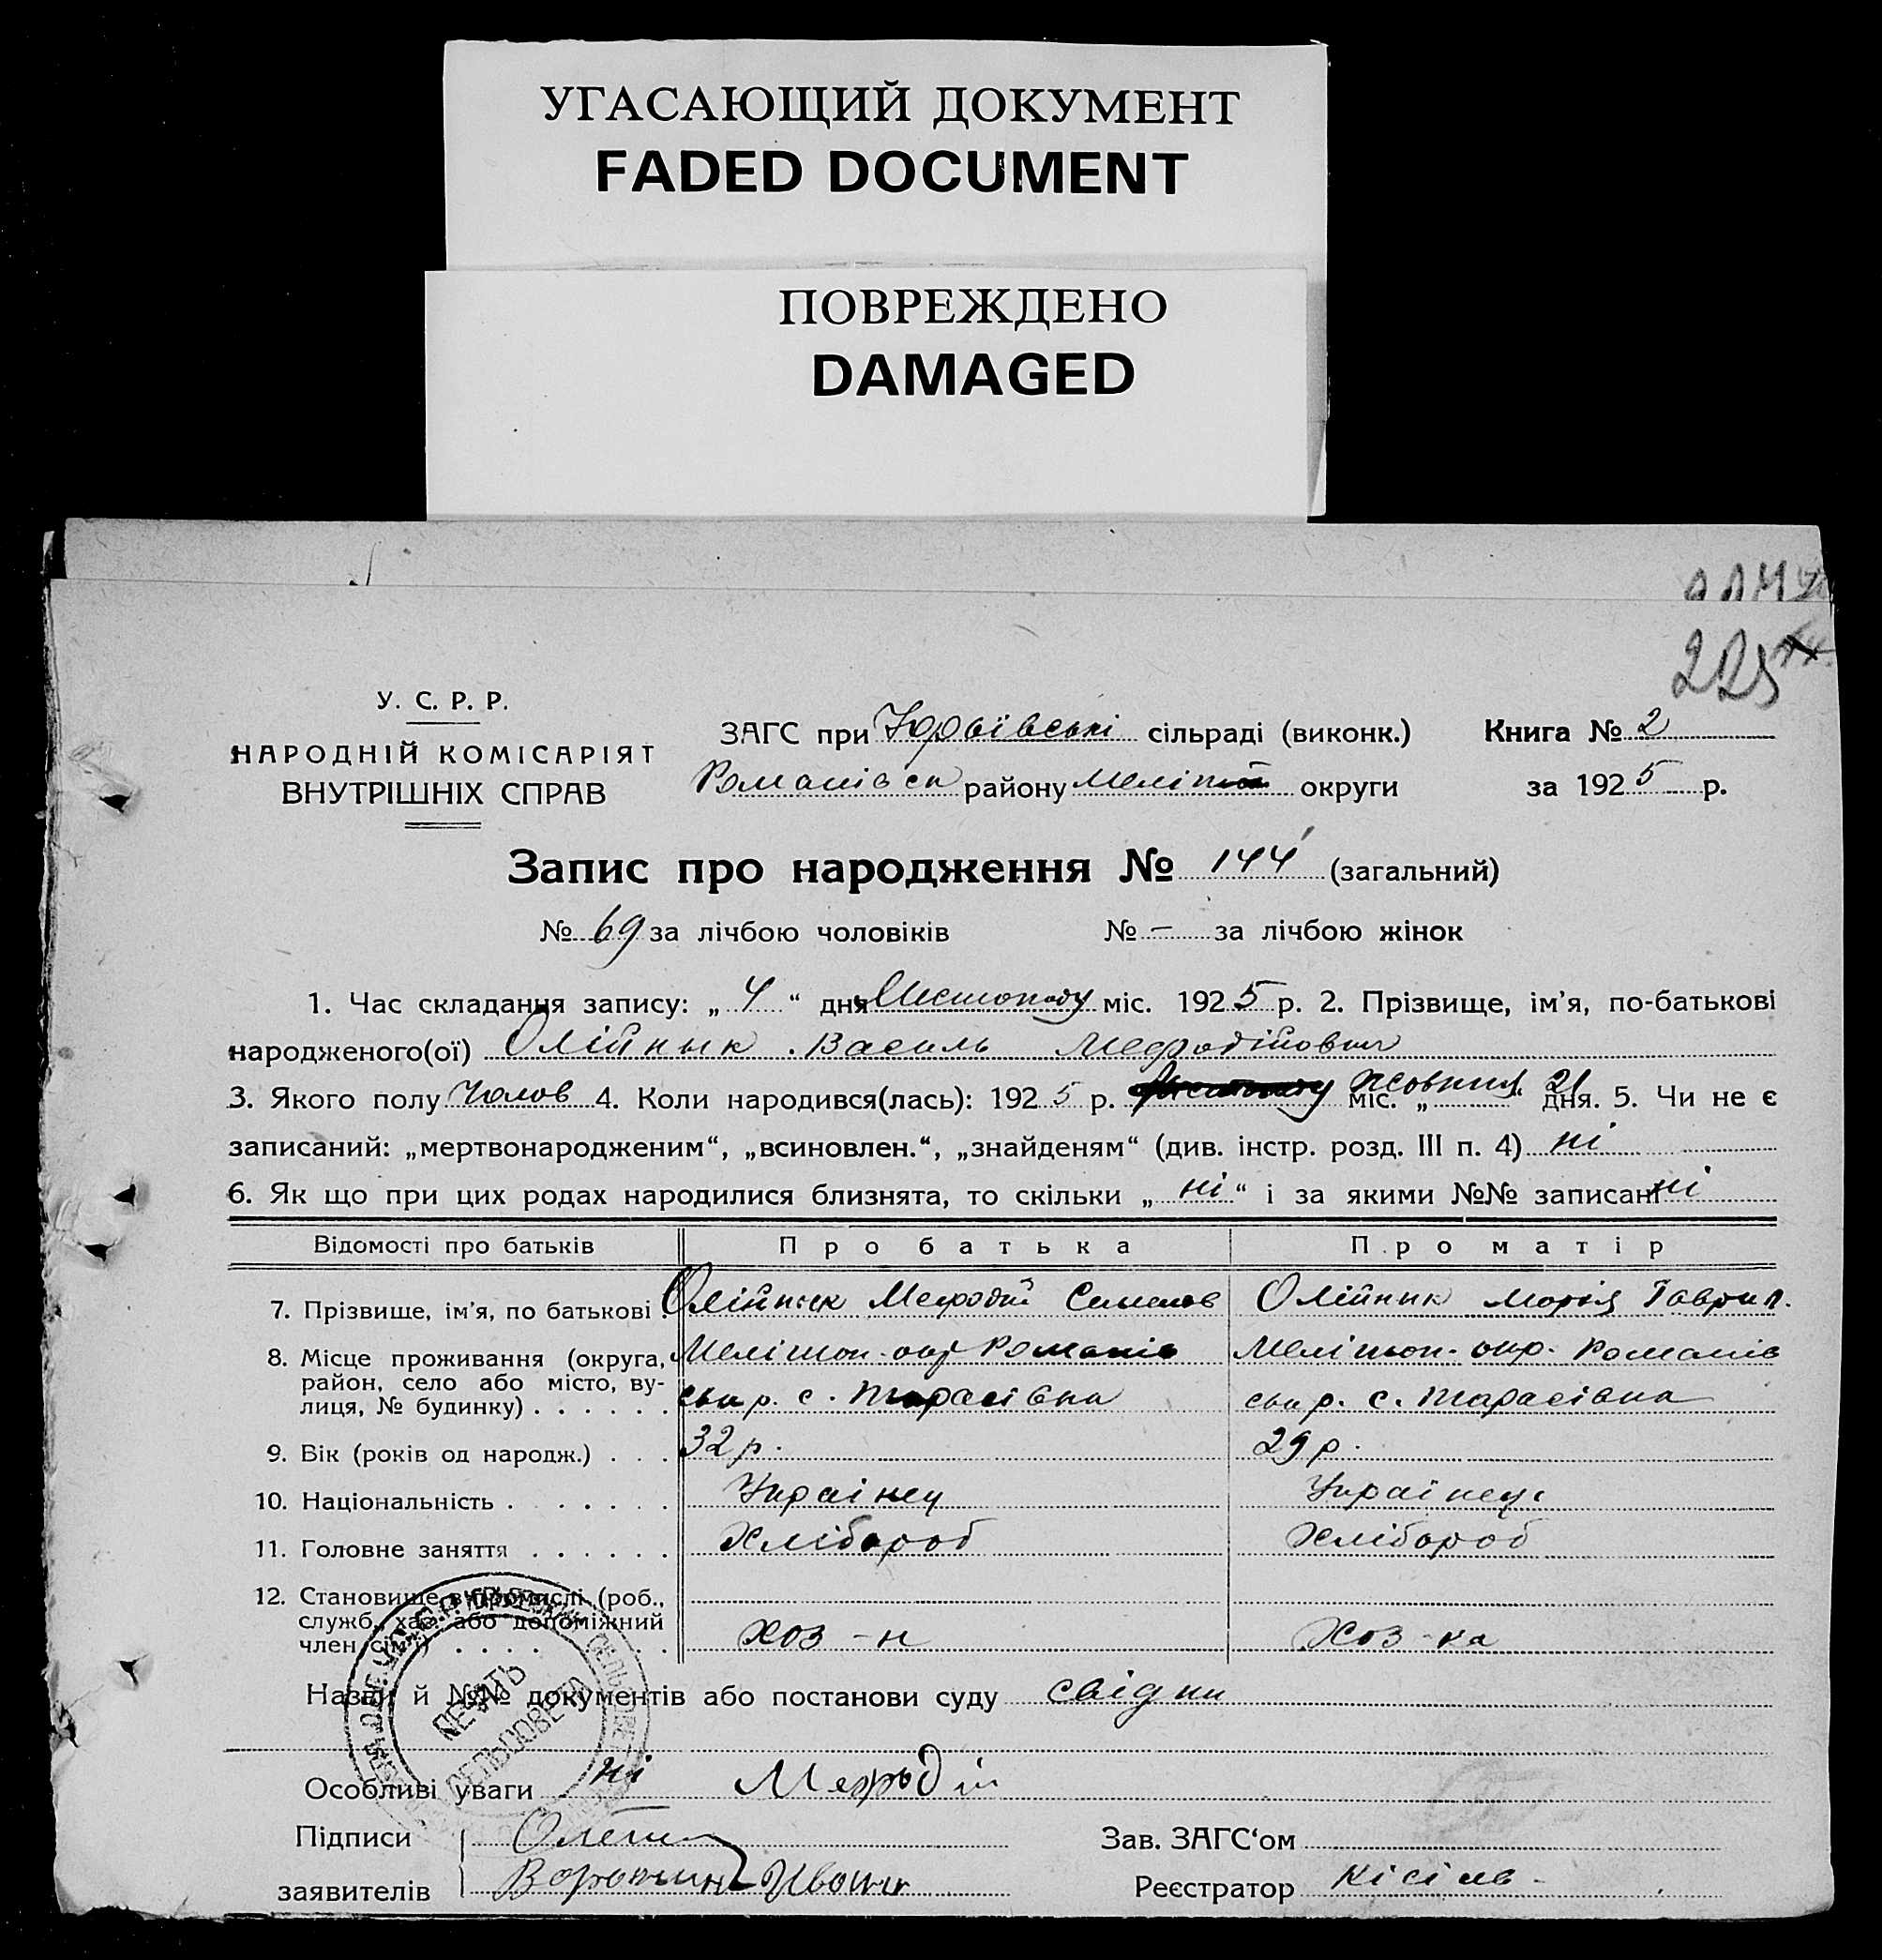 УГАСАЮЩИЙ ДОКУМЕНТ
FADED DOCUMENT
ПОВРЕЖДЕНО
DAMAGED
225
У. С. Р. Р.
НАРОДНІЙ КОМІСАРІЯТ
ВНУТРІШНІХ СПРАВ
ЗАГС при Юрʼївські сільраді (виконк.)
Романівск району Меліт округи
Книга № 2
за 1925 р.
Запис про народження № 144 (загальний)
№ 69 за лічбою чоловіків № — за лічбою жінок
1. Час складання запису: „ 4 “ дня Листопаду міс. 1925 р. 2. Прізвище, ім'я, по-батькові
народженого(ої) Олійнык Василь Мефодійович
3. Якого полу Чолов 4. Коли народився(лась): 1925 р. міс. „ жовтня “ 21 дня. 5. Чи не є
записаний: „мертвонародженим“, „всиновлен.“, „знайденям“ (див. інстр. розд. III п. 4) ні
6. Як що при цих родах народилися близнята, то скільки „ ні “ і за якими №№ записані ні
Відомості про батьків Про батька Про матір
7. Прізвище, ім'я, по батькові . Олійнык Мефодій Семенов Олійнык Марія Гаврил.
8. Місце проживання (округа, район, село або місто, вулиця, № будинку) . . . . . . Мелітоп. окр Романів Меліпоп. окр. Романів
ськ р. с. Тарасівка ськ р. с. Тарасівка
9. Вік (років од народж.) . . . 32 р. 29 р.
10. Національність . . . . . . . Українец Українец
11. Головне заняття . . . . . . Хлібороб Хлібороб
12. Становище в промислі (роб., служб., хаз. або допоміжний член сім'ї) . . . . хоз-н Хоз-ка
Назви й №№ документів або постанови суду свідки
ПЕЧАТЬ
СЕЛЬСОВЕТА
Особливі уваги ні Мефодій
Підписи
заявителів Іван
Зав. ЗАГС'ом
Реєстратор Кісіль